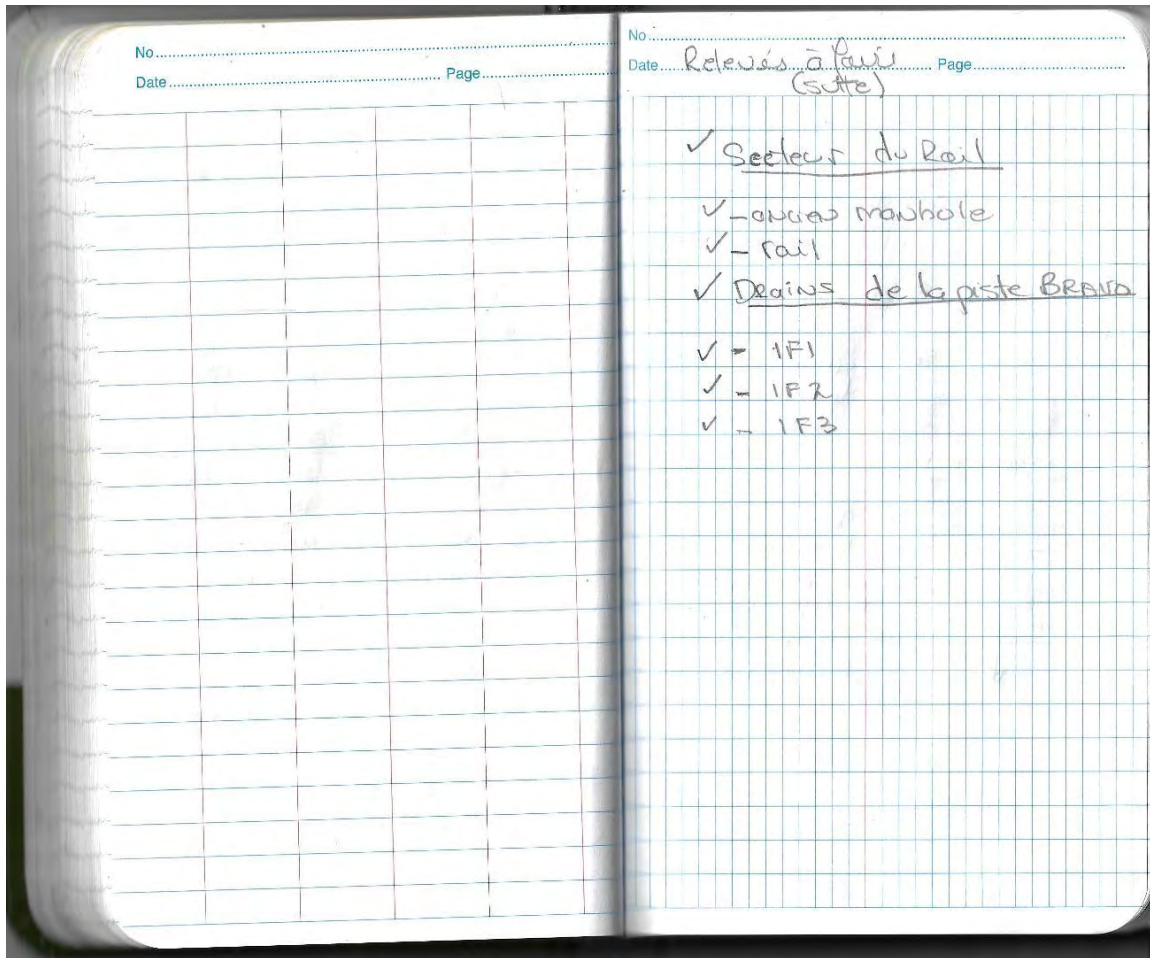 No
Date Page
No
Date Relevés à faire Page
(suite)
✓ Secteur du Rail
✓ - ancien manhole
✓ - rail
✓ Drains de la piste BRAVO
✓ - 1F1
✓ - 1F2
✓ - 1F3